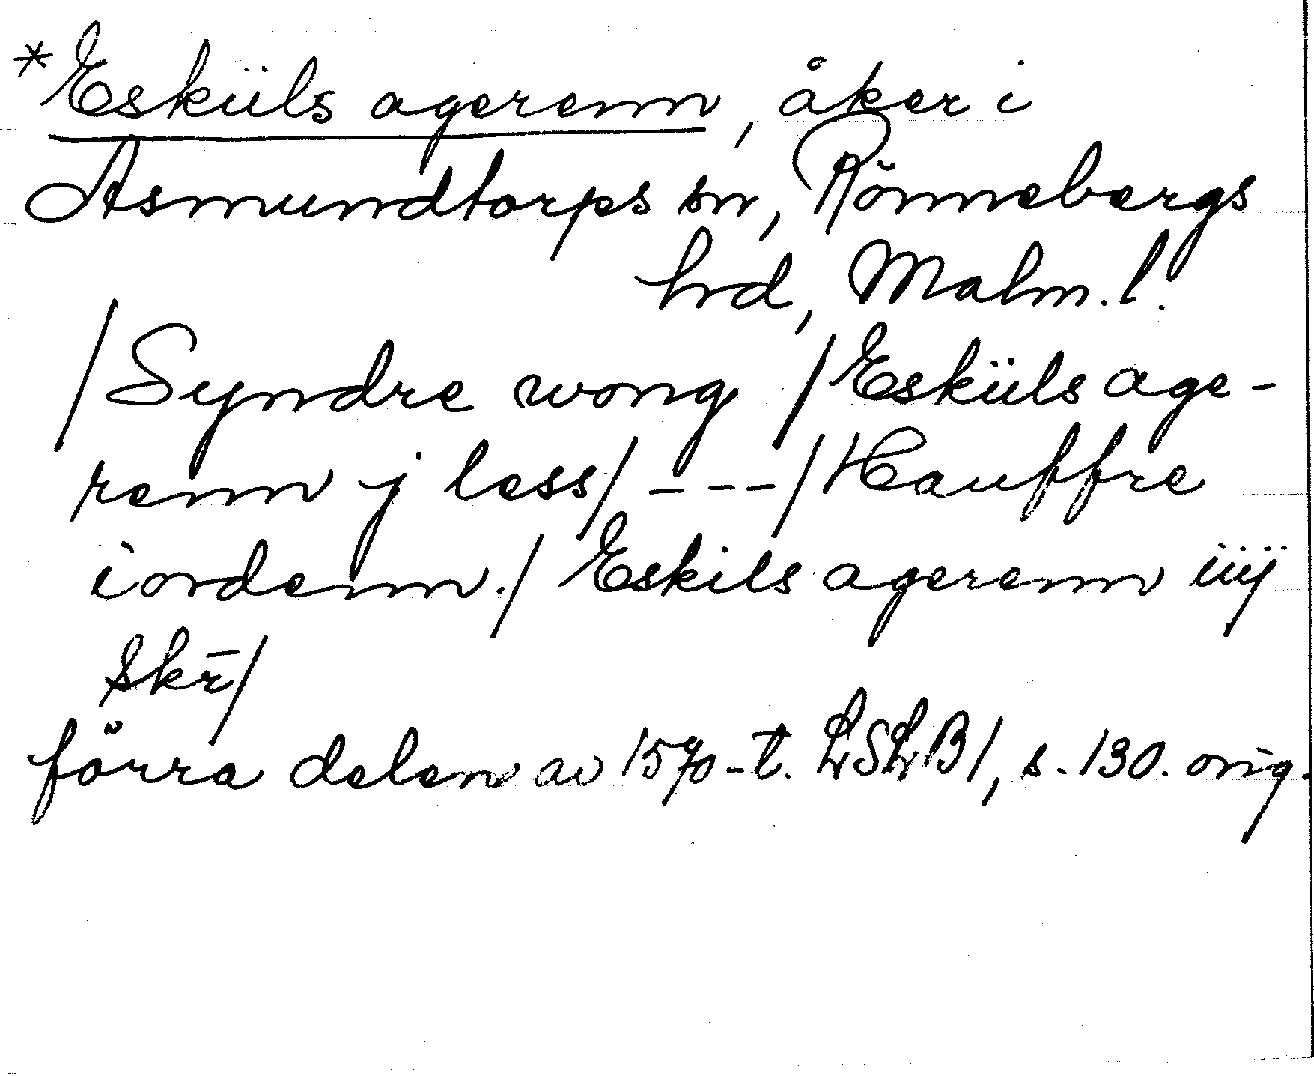 *Esküls agerenn, åker i
Asmundtorps sn, Rönnebergs
hrd, Malm. l.
/Syndre wong /Esküls age-
renn j less/ _ - - -/Hauffre
iordenn./ Eskils agerenn iiij
skr̄/
förra delen av 1570-t. LSLB1, s. 130. orig.